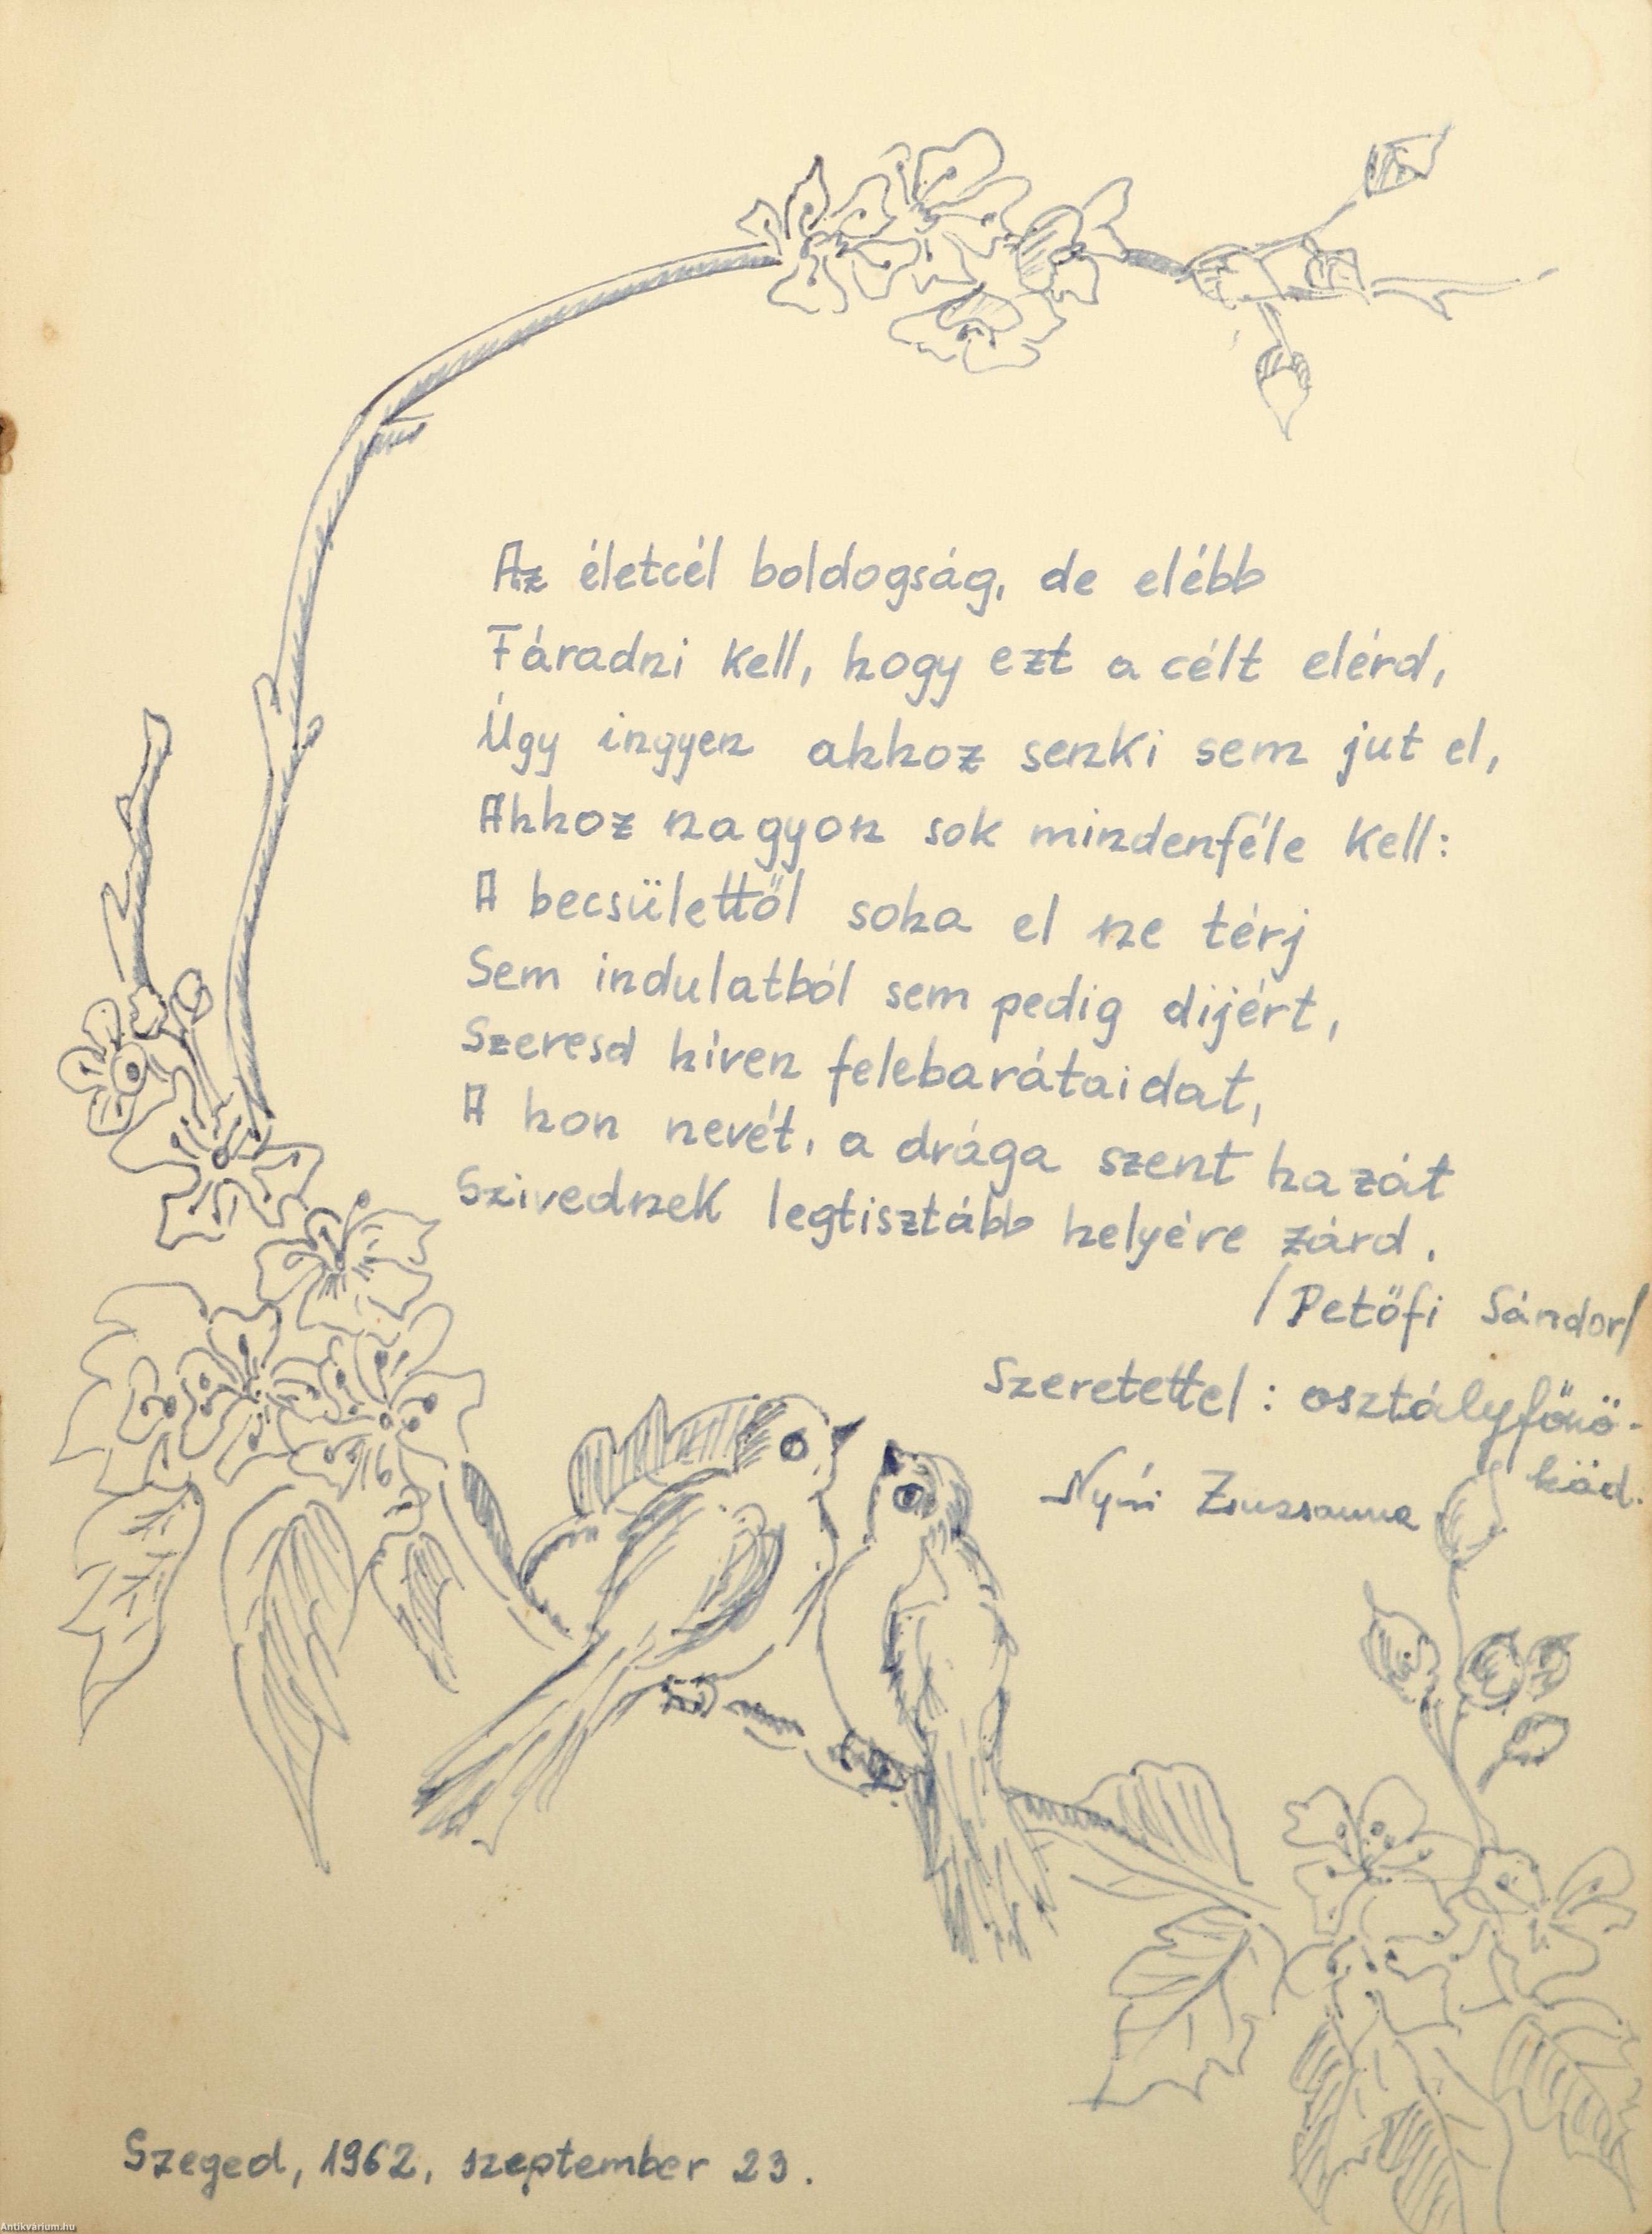 Az életcél boldogság, de elébb
Fáradni kell, hogy ezt a célt elérd,
Úgy ingyen ahhoz senki sem jut el,
Ahhoz nagyon sok mindenféle kell:
A becsülettől soha el ne térj
Sem indulatból sem pedig dijért,
Szeresd híven felebarátaidat,
A hon nevét, a drága szent hazát
Szivednek legtisztább helyére zárd.
/Petőfi Sándor/
Szeretettel: osztályfőnö-
köd.
Nyíri Zsuzsanna
Szeged, 1962, szeptember 23.
Antikvárium.hu